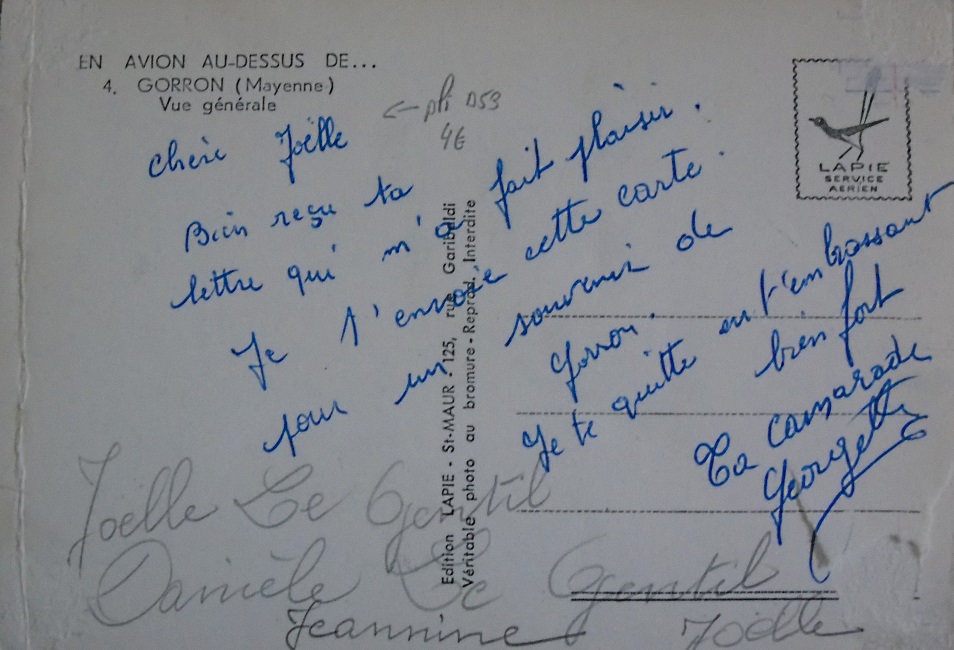 EN AVION AU-DESSUS DE...
4. GORRON (Mayenne)
Vue générale
LAPIE
SERVICE
AERIEN
Chère Joëlle
Bien reçu ta
lettre qui m'a fait plaisir.
Je t'envoie cette carte
pour un souvenir de
Gorron.
Je te quitte en t'embrassant
bien fort
Ta camarade
Georgette
Edition LAPIE - St-MAUR - 125, rue Garibaldi
Véritable photo au bromure - Reprod. Interdite
Joëlle Le Gentil
Danièle Le Gentil
Jeannine Joëlle
4€